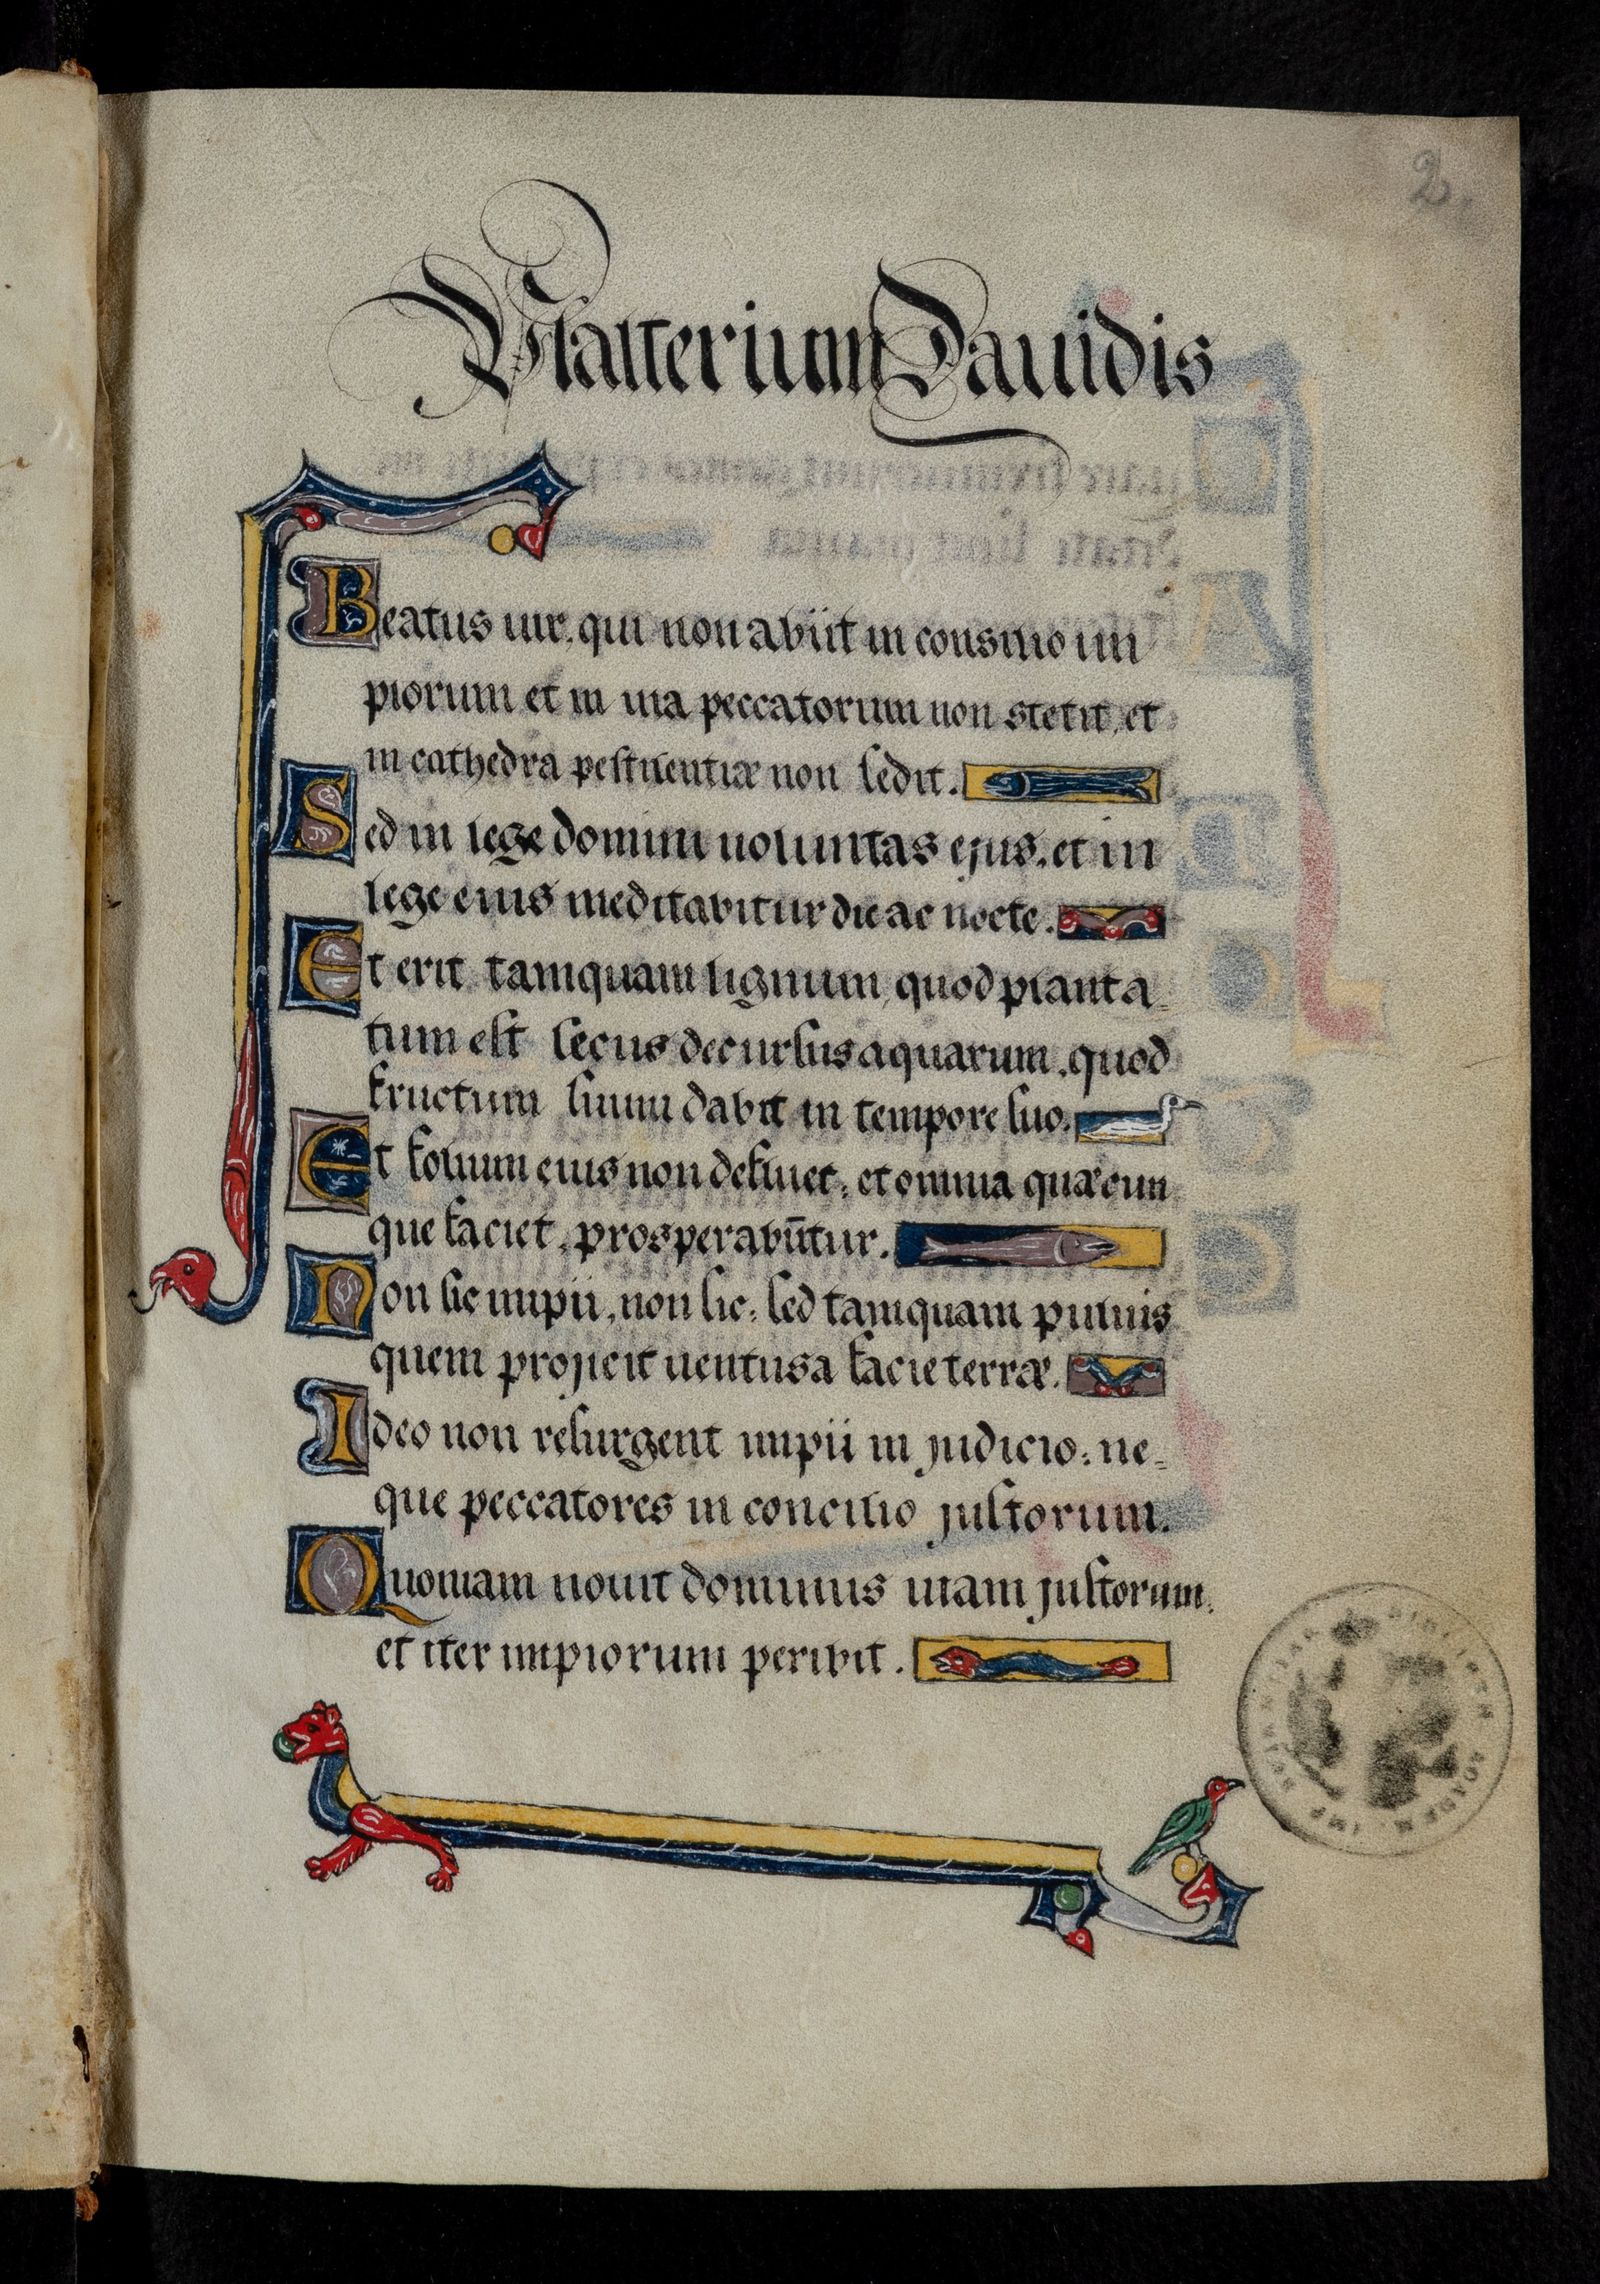 2.
Psalterium Dauidis
Beatus uir, qui non abiit in consilio im
piorum et in uia peccatorum non stetit, et
in cathedra pestilentiæ non sedit.
Sed in lege domini uoluntas ejus, et in
lege eius meditabitur die ac nocte.
Et erit tamquam lignum, quod planta-
tum est secus decursus aquarum, quod
fructum suum dabit in tempore suo.
Et folium eius non defluet: et omnia quæcun
que faciet, prosperabūtur.
Non sic impii, non sic: sed tamquam puluis
quem projicit uentus a facie terræ.
Ideo non resurgent impii in judicio: ne-
que peccatores in concilio justorum.
Quoniam nouit dominus uiam justorum.
et iter impiorum peribit.